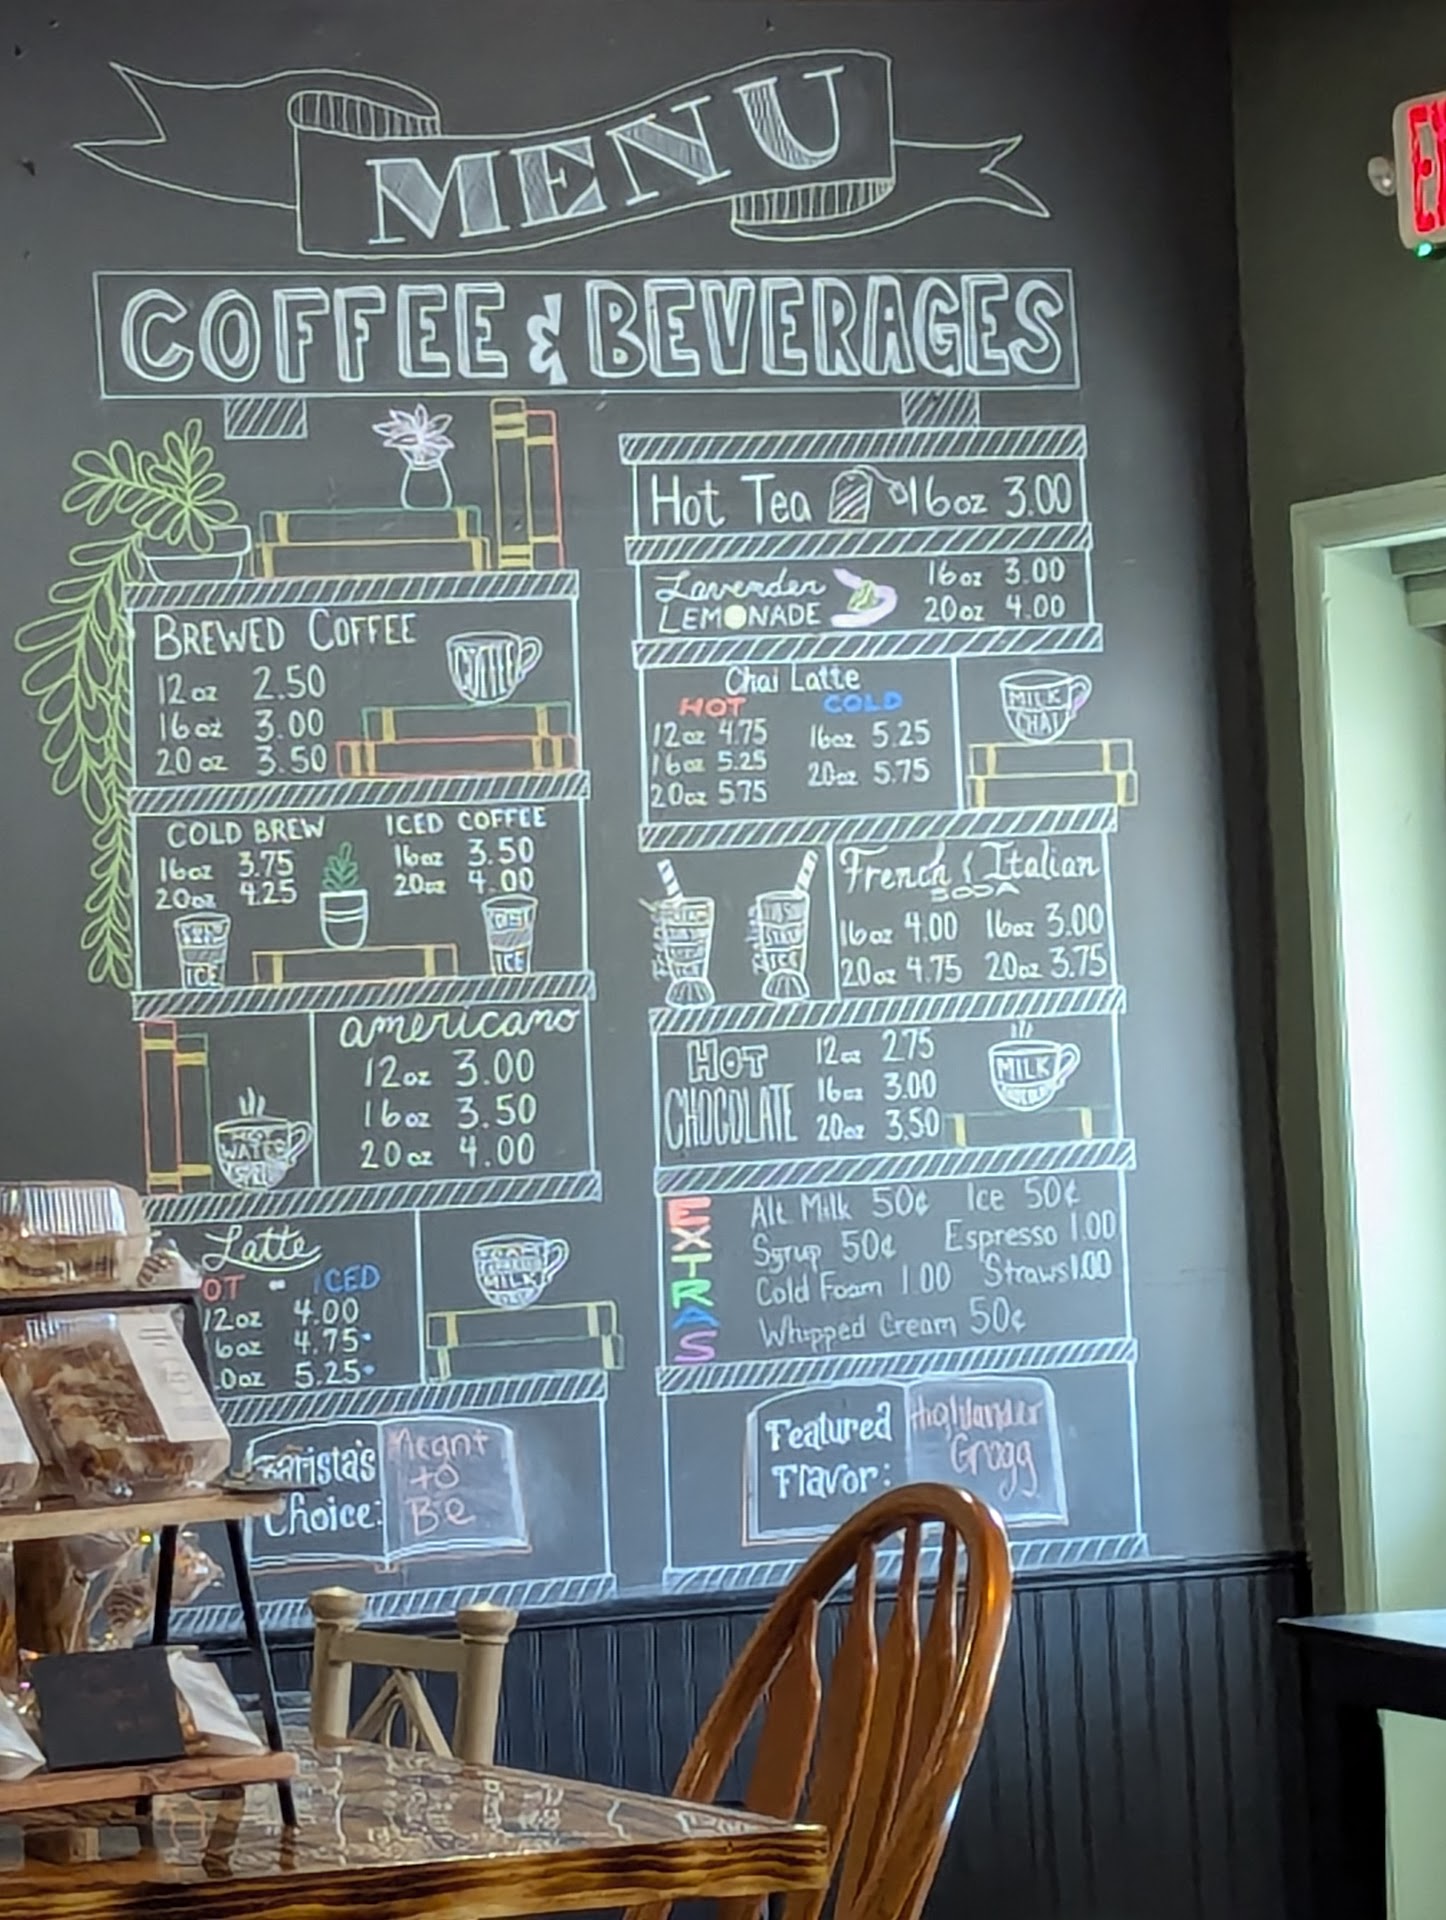 MENU
COFFEE & BEVERAGES
BREWED COFFEE
12oz 2.50
16oz 3.00
20oz 3.50
COFFEE
COLD BREW
16oz 3.75
20oz 4.25
ICED COFFEE
16oz 3.50
20oz 4.00
ICE
ICE
americano
12oz 3.00
16oz 3.50
20oz 4.00
WATER
Latte
OT - ICED
12oz 4.00
6oz 4.75
0oz 5.25
FOAM
MILK
Barista's
Choice:
Meant
to
Be
Hot Tea 16oz 3.00
Lavender
LEMONADE
16oz 3.00
20oz 4.00
Chai Latte
HOT
12oz 4.75
16oz 5.25
20oz 5.75
COLD
16oz 5.25
20oz 5.75
MILK
CHAI
French & Italian
SODA
16oz 4.00 16oz 3.00
20oz 4.75 20oz 3.75
HOT
CHOCOLATE
12oz 2.75
16oz 3.00
20oz 3.50
MILK
CHOCOLATE
EXTRAS
Alt Milk 50¢ Ice 50¢
Syrup 50¢ Espresso 1.00
Cold Foam 1.00 Straws 1.00
Whipped Cream 50¢
Featured
Flavor:
Highlander
Grogg